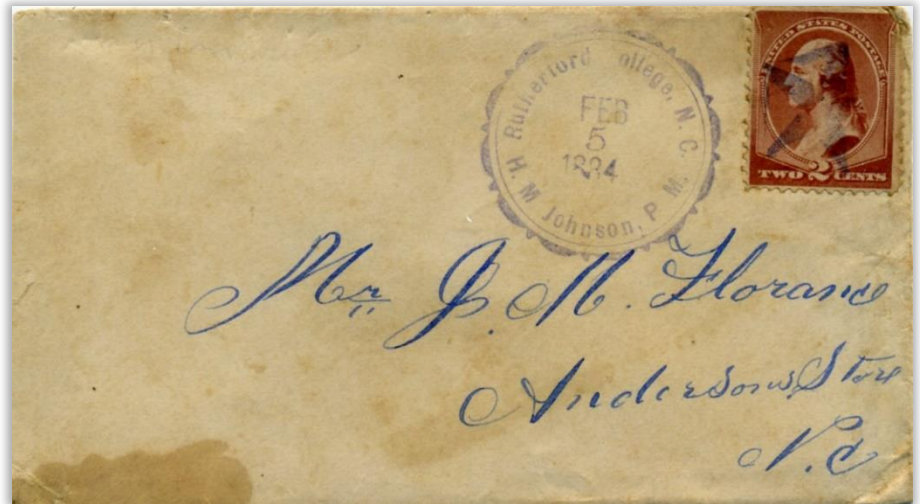 Rutherford ollege, N. C.
FEB
5
1884
H. M Johnson, P M.
UNITED STATES POSTAGE
TWO 2 CENTS
Mr J. M. Florance
Andersons Store
N.C